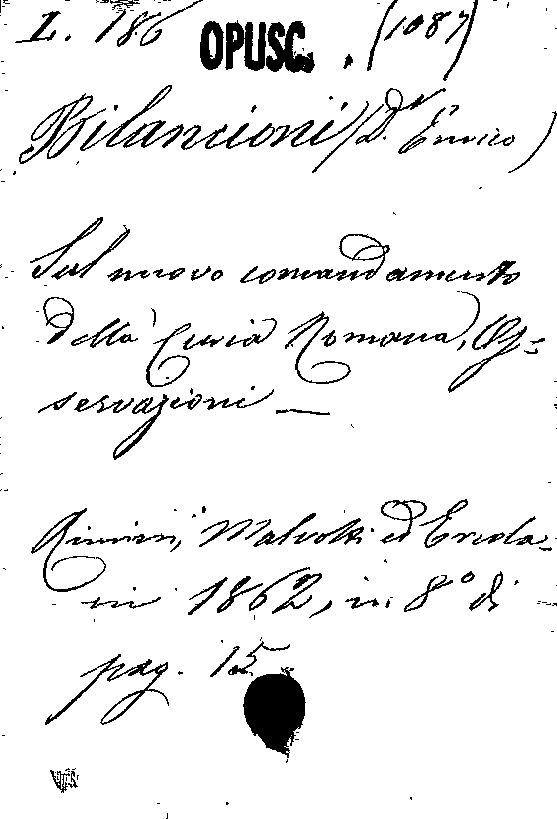 L. 186 OPUSC. . (1087)
Bilancioni (Dr. Enrico)
Sul nuovo comandamento
della Curia Romana, Os=
servazioni —
Rimini, Malvolti ed Ercola-
ni 1862, in 8° di
pag. 15